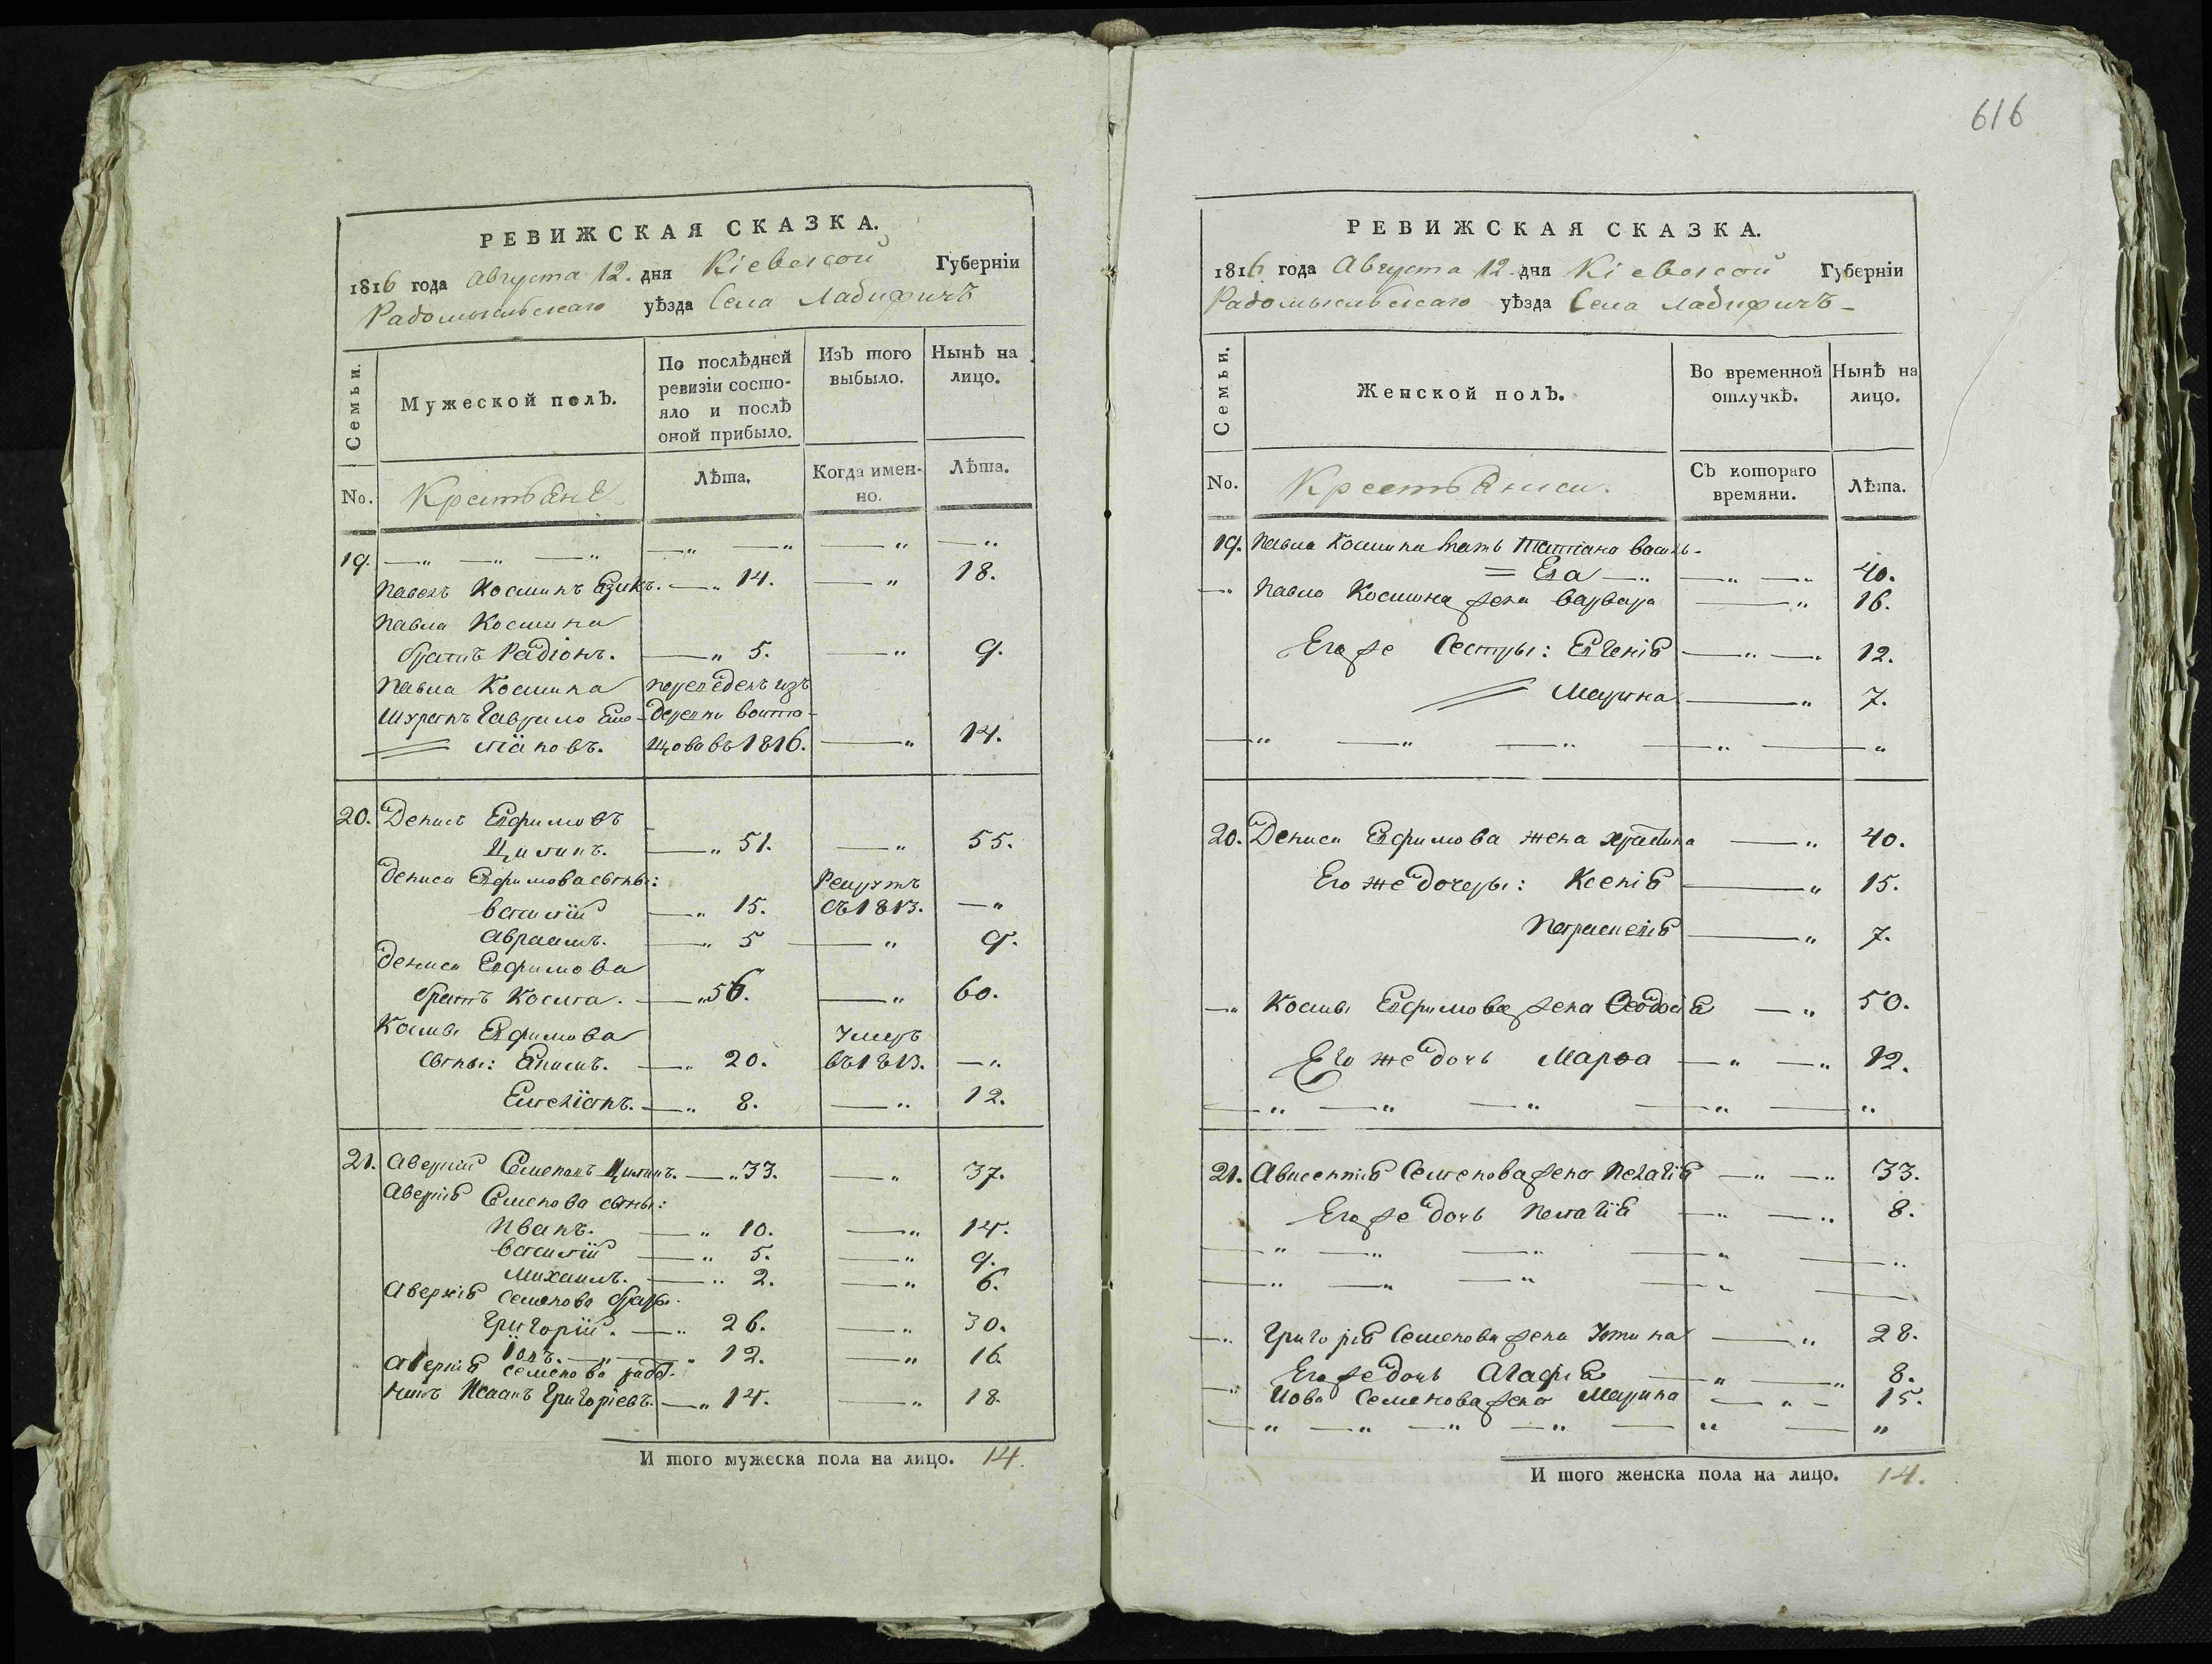 РЕВИЖСКАЯ СКАЗКА.
1816 года Августа 12. дня Кіевской Губерніи
Радомысльскаго уѣзда Села Ладижичъ
Семьи.
Мужеской полъ.
По послѣдней ревизіи состояло и послѣ оной прибыло.
Изъ того выбыло.
Нынѣ на лицо.
No.
Крестьяне
Лѣта.
Когда именно.
Лѣта.
19. —„ —„ —„ —„ —„ —„ —„
Павелъ Косминъ —„ 14. —„ 18.
Павла Космина
братъ Радіонъ. —„ 5. —„ 9.
Павла Космина переведенъ изъ
Шуринъ Гаврило Еме- деревни
=ліановъ. въ 1816. —„ 14.
20. Денисъ Ефимовъ
—„ 51. —„ 55.
Дениса Ефимова сыны: Рекрутъ
Василій —„ 15. съ 1813. —„
Авраамъ. —„ 5 —„ 9.
Дениса Ефимова
братъ Косма. —„ 56. —„ 60.
Космы Ефимова умеръ
сыны: —„ 20. въ 1813. —„
Емеліанъ. —„ 8. —„ 12.
21. Аверкій Семеновъ —„ 33. —„ 37.
Аверкія Семенова сыны:
Иванъ. —„ 10. —„ 14.
Василій —„ 5. —„ 9.
Михаилъ. —„ 2. —„ 6.
Аверкія Семенова братья
Григорій. —„ 26. —„ 30.
Іовъ. —„ 12. —„ 16.
Аверкія Семенова работ-
никъ Исаакъ Григоріевъ. —„ 14. —„ 18.
И того мужеска пола на лицо. 14.
616
РЕВИЖСКАЯ СКАЗКА.
1816 года Августа 12 дня Кіевской Губерніи
Радомысльскаго уѣзда Села Ладижичъ -
Семьи.
Женской полъ.
Во временной отлучкѣ.
Нынѣ на лицо.
No.
Крестьянки.
Съ котораго времяни.
Лѣта.
19. Павла Космина мать Татіана Василь-
= Ева —„ —„ —„ 40.
—„ Павла Космина жена Варвара —„ 16.
Его же Сестры: Евгенія —„ —„ 12.
= Марина —„ 7.
—„ —„ —„ —„ —„
20. Дениса Ефимова жена Христина —„ 40.
Его же дочеры: Ксенія —„ 15.
Параскевія —„ 7.
—„ Космы Ефимова жена Феодосія —„ 50.
Его же дочь Марѳа —„ —„ 12.
—„ —„ —„ —„ „
21. Авксентія Семенова жена Пелагія —„ —„ 33.
Его же дочь Пелагія —„ —„ 8.
—„ —„ —„ —„ —„
—„ —„ —„ —„ —
—„ Григорія Семенова жена Устина —„ 28.
Его же дочь Агафія —„ —„ 8.
—„ Иова Семенова жена Марина —„ - 15.
—„ —„ —„ —„ —„ —„
И того женска пола на лицо. 14.